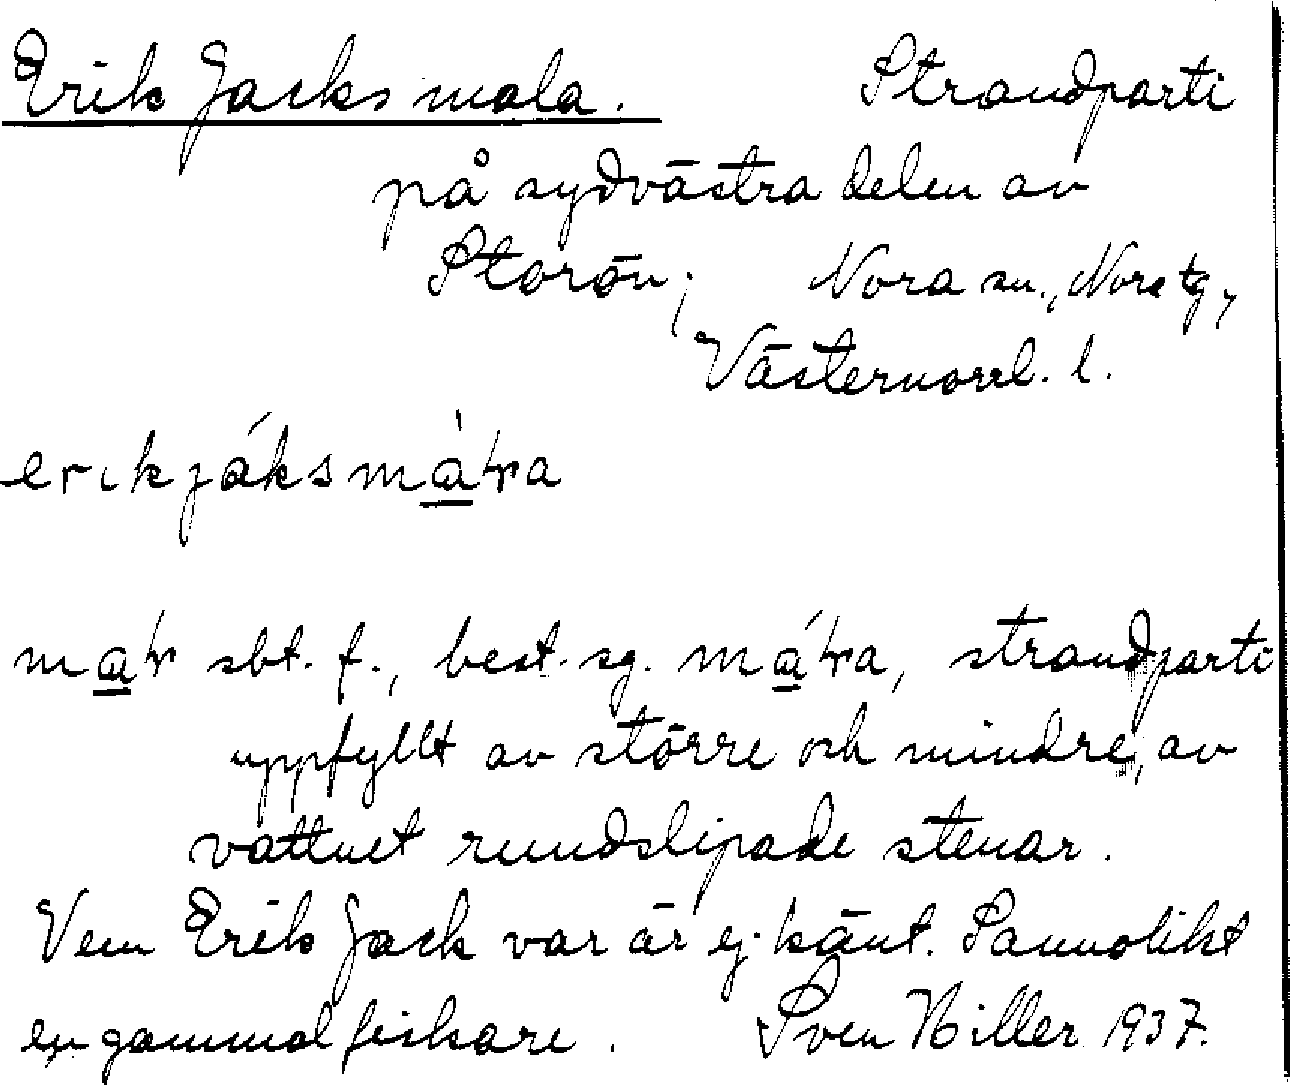 Erik Jacks mala. Strandparti
på sydvästra delen av
Storön; Nora sn., Nora tg,
Västernorrl. l.
erik jáks
sbt. f., best. sg. strandparti
uppfyllt av större och mindre, av
vattnet rundslipade stenar.
Vem Erik Jack var är ej känt. Sannolikt
en gammal fiskare. Sven Hiller 1937.